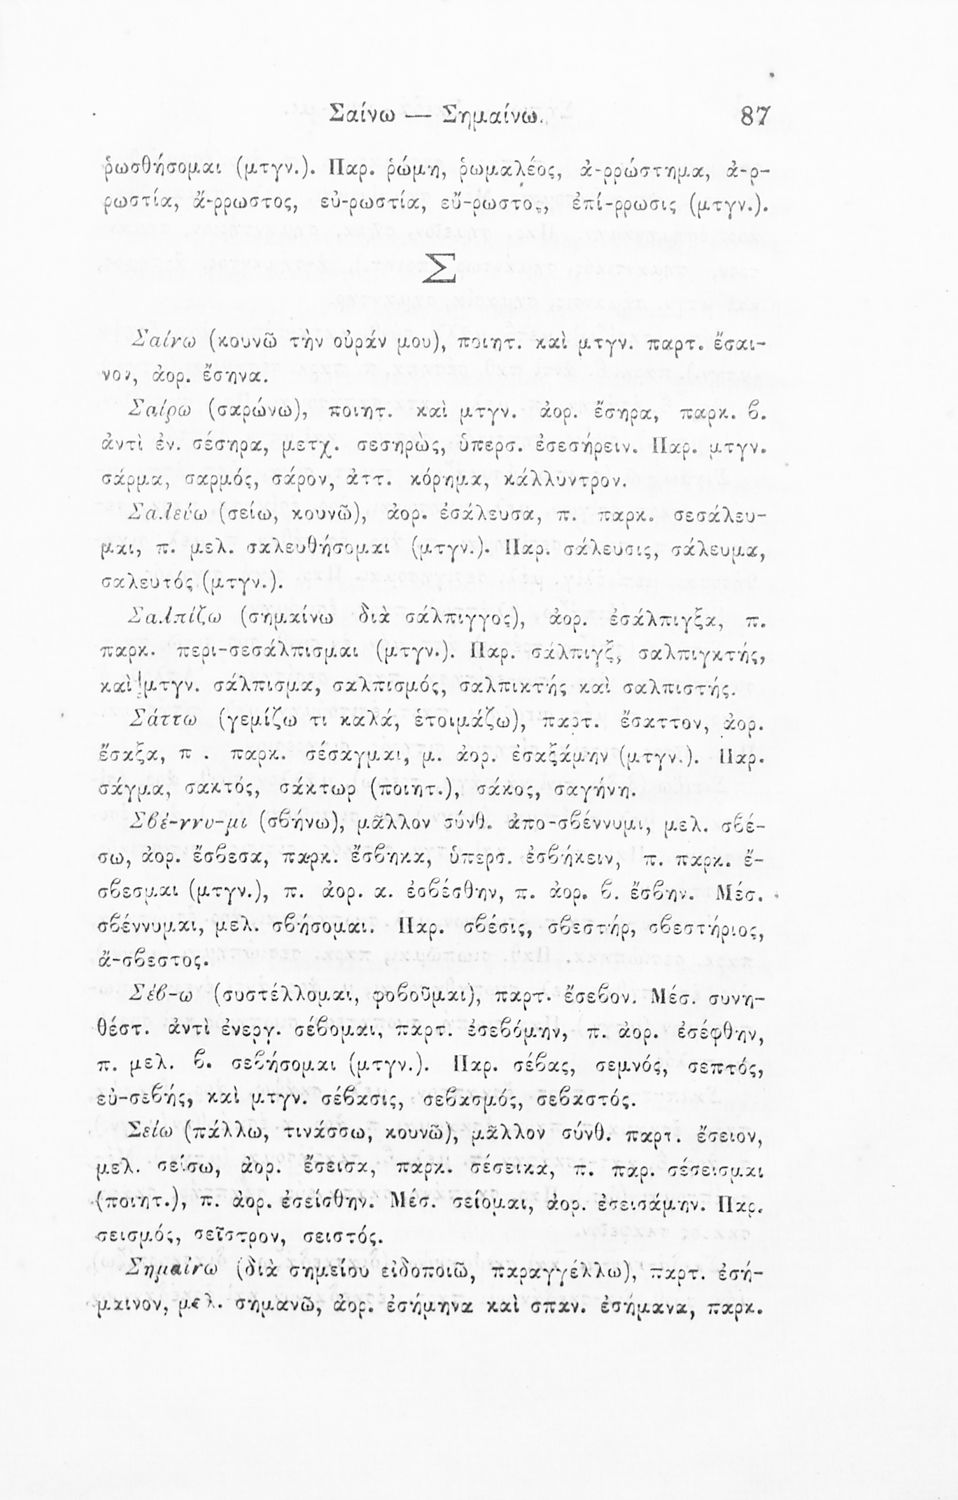 Σαίνω — Σημαίνω. 87
ῥωσθήσομαι (μτγν.). Παρ. ῥώμη, ῥωμαλέος, ἀ-ρρώστημα, ἀ-ρ-
ρωστία, ἄ-ρρωστος, εὐ-ρωστία, εὔ-ρωστος, ἐπί-ρρωσις (μτγν.).
Σ
Σαίνω (κουνῶ τὴν οὐράν μου), ποιητ. καὶ μτγν. παρτ. ἔσαι-
νον, ἀορ. ἔσηνα.
Σαίρω (σαρώνω), ποιητ. καὶ μτγν. ἀορ. ἔσηρα, παρκ. ϐ.
ἀντὶ ἐν. σέσηρα, μετχ. σεσηρὼς, ὑπερσ. ἐσεσήρειν. Παρ. μτγν.
σάρμα, σαρμός, σάρον, ἀττ. κόρημα, κάλλυντρον.
Σαλεύω (σείω, κουνῶ), ἀορ. ἐσάλευσα, π. παρκ. σεσάλευ-
μαι, π. μελ. σαλευθήσομαι (μτγν.). Παρ. σάλευσις, σάλευμα,
σαλευτός (μτγν.).
Σαλπίζω (σημαίνω διὰ σάλπιγγος), ἀορ. ἐσάλπιγξα, π.
παρκ. περι-σεσάλπισμαι (μτγν.). Παρ. σάλπιγξ, σαλπιγκτής,
καὶ μτγν. σάλπισμα, σαλπισμός, σαλπικτής καὶ σαλπιστής.
Σάττω (γεμίζω τι καλά, ἑτοιμάζω), παρτ. ἔσαττον, ἀορ.
ἔσαξα, π . παρκ. σέσαγμαι, μ. ἀορ. ἐσαξάμην (μτγν.). Παρ.
σάγμα, σακτός, σάκτωρ (ποιητ.), σάκος, σαγήνη.
Σϐέ-ννυ-μι (σϐήνω), μᾶλλον σύνθ. ἀπο-σϐέννυμι, μελ. σϐέ-
σω, ἀορ. ἔσϐεσα, παρκ. ἔσϐηκα, ὑπερσ. ἐσϐήκειν, π. παρκ. ἔ-
σϐεσμαι (μτγν.), π. ἀορ. α. ἐσϐέσθην, π. ἀορ. ϐ. ἔσϐην. Μέσ.
σϐέννυμαι, μελ. σϐήσομαι. Παρ. σϐέσις, σϐεστήρ, σϐεστήριος,
ἄ-σϐεστος.
Σέϐ-ω (συστέλλομαι, φοϐοῦμαι), παρτ. ἔσεϐον. Μέσ. συνη-
θέστ. ἀντὶ ἐνεργ. σέϐομαι, παρτ. ἐσεϐόμην, π. ἀορ. ἐσέφθην,
π. μελ. ϐ. σεϐήσομαι (μτγν.). Παρ. σέϐας, σεμνός, σεπτός,
εὐ-σεϐής, καὶ μτγν. σέϐασις, σεϐασμός, σεϐαστός.
Σείω (πάλλω, τινάσσω, κουνῶ), μᾶλλον σύνθ. παρτ. ἔσειον,
μελ. σείσω, ἀορ. ἔσεισα, παρκ. σέσεικα, π. παρ. σέσεισμαι
(ποιητ.), π. ἀορ. ἐσείσθην. Μέσ. σείομαι, ἀορ. ἐσεισάμην. Παρ.
σεισμός, σεῖστρον, σειστός.
Σημαίνω (διὰ σημείου εἰδοποιῶ, παραγγέλλω), παρτ. ἐσή-
μαινον, μελ. σημανῶ, ἀορ. ἐσήμηνα καὶ σπαν. ἐσήμανα, παρκ.